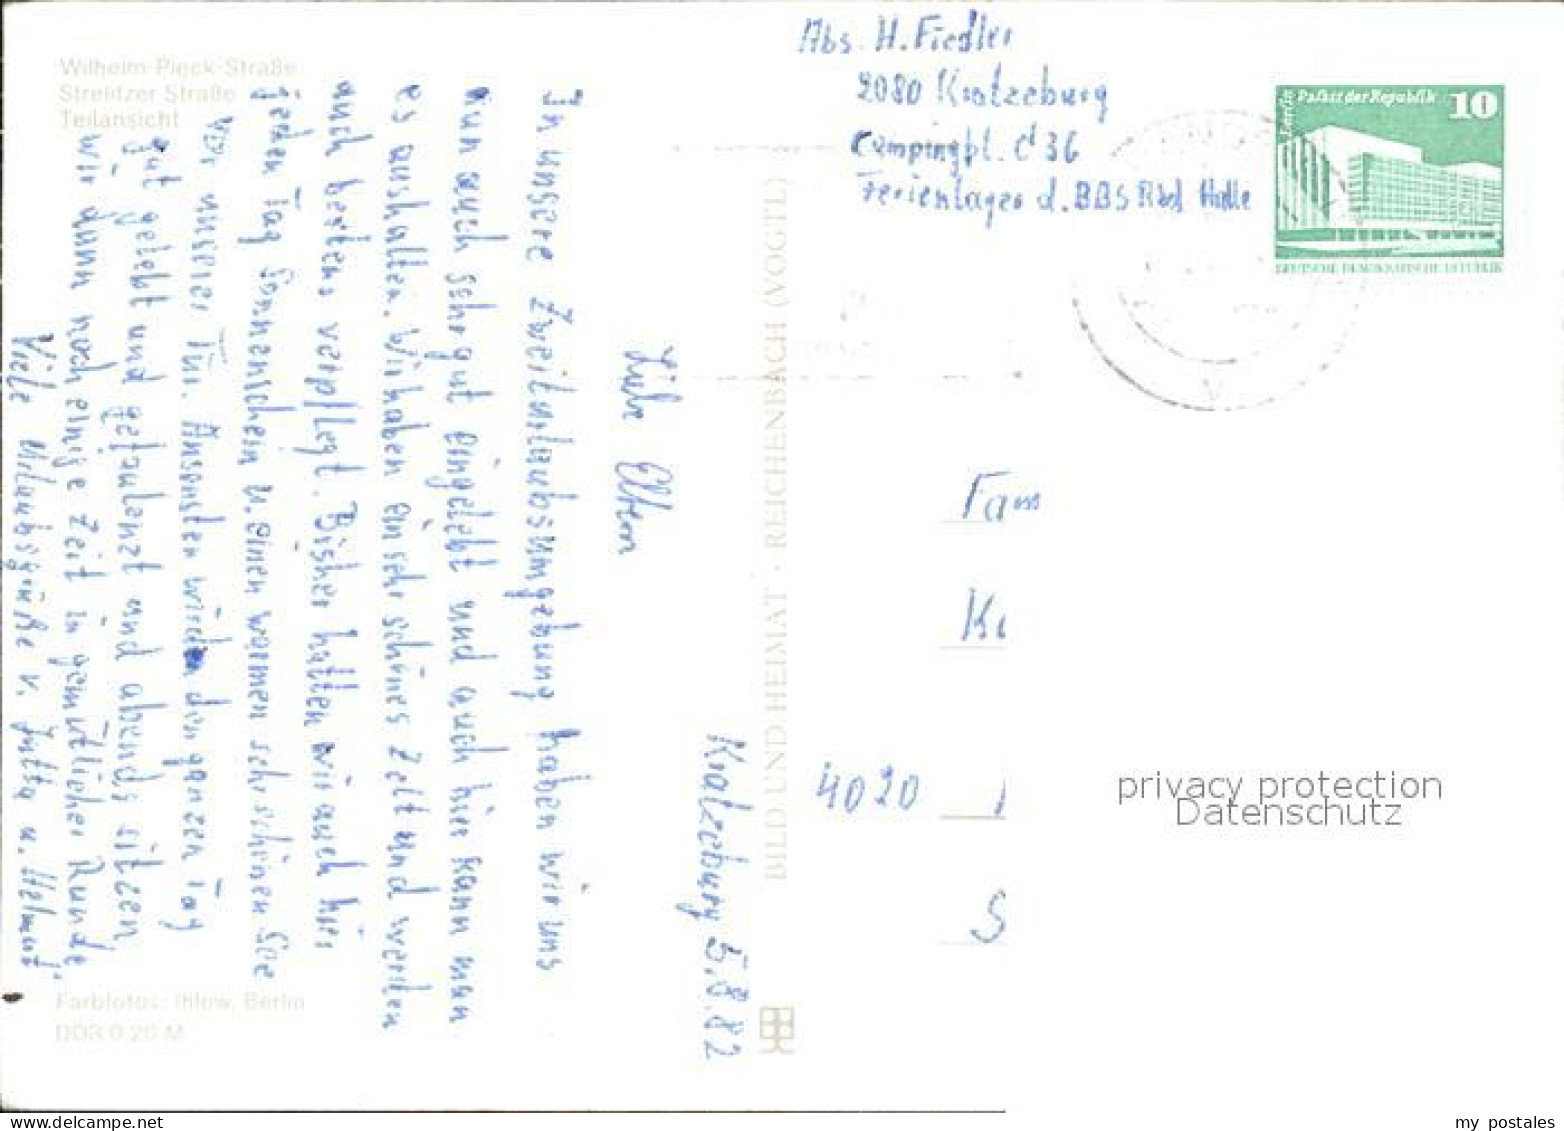 Wilhelm-Pieck-Straße
Strelitzer Straße
Teilansicht
Kratzeburg 5.8.82
Liebe Eltern
In unsere Zweiturlaubsumgebung haben wir uns
nun auch sehr gut eingelebt und auch hier kann man
es aushalten. Wir haben ein sehr schönes Zelt und werden
auch bestens verpflegt. Bisher hatten wir auch hier
jeden Tag Sonnenschein u. einen warmen sehr schönen See
vor unserer Tür. Ansonsten wird den ganzen Tag
gut gelebt und gefaulenzt und abends sitzen
wir dann noch einige Zeit in gemütlicher Runde.
Viele Urlaubsgrüße v. Jutta u. Helmut
Farbfotos: Ihlow, Berlin
DDR 0,20 M
BILD UND HEIMAT · REICHENBACH (VOGTL)
Abs. H. Fiedler
2080 Kratzeburg
Campingpl. C 36
Ferienlager d. BBS Rbd Halle
Berlin Palast der Republik 10
DEUTSCHE DEMOKRATISCHE REPUBLIK
Fam
4020
S
privacy protection
Datenschutz
my postales